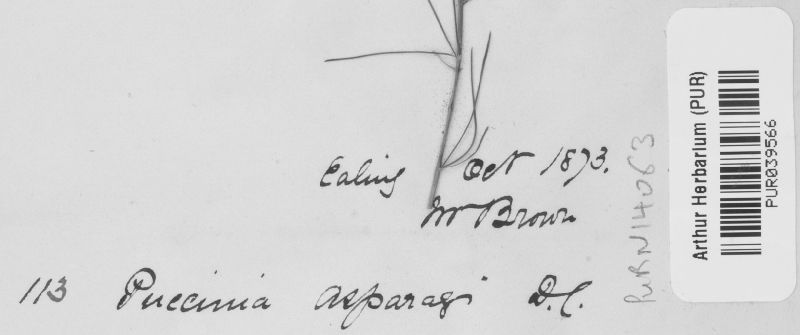 Ealing Oct 1873.
Mr Brown
113 Puccinia asparagi D.C.
PURN14063
Arthur Herbarium (PUR)
PUR039566